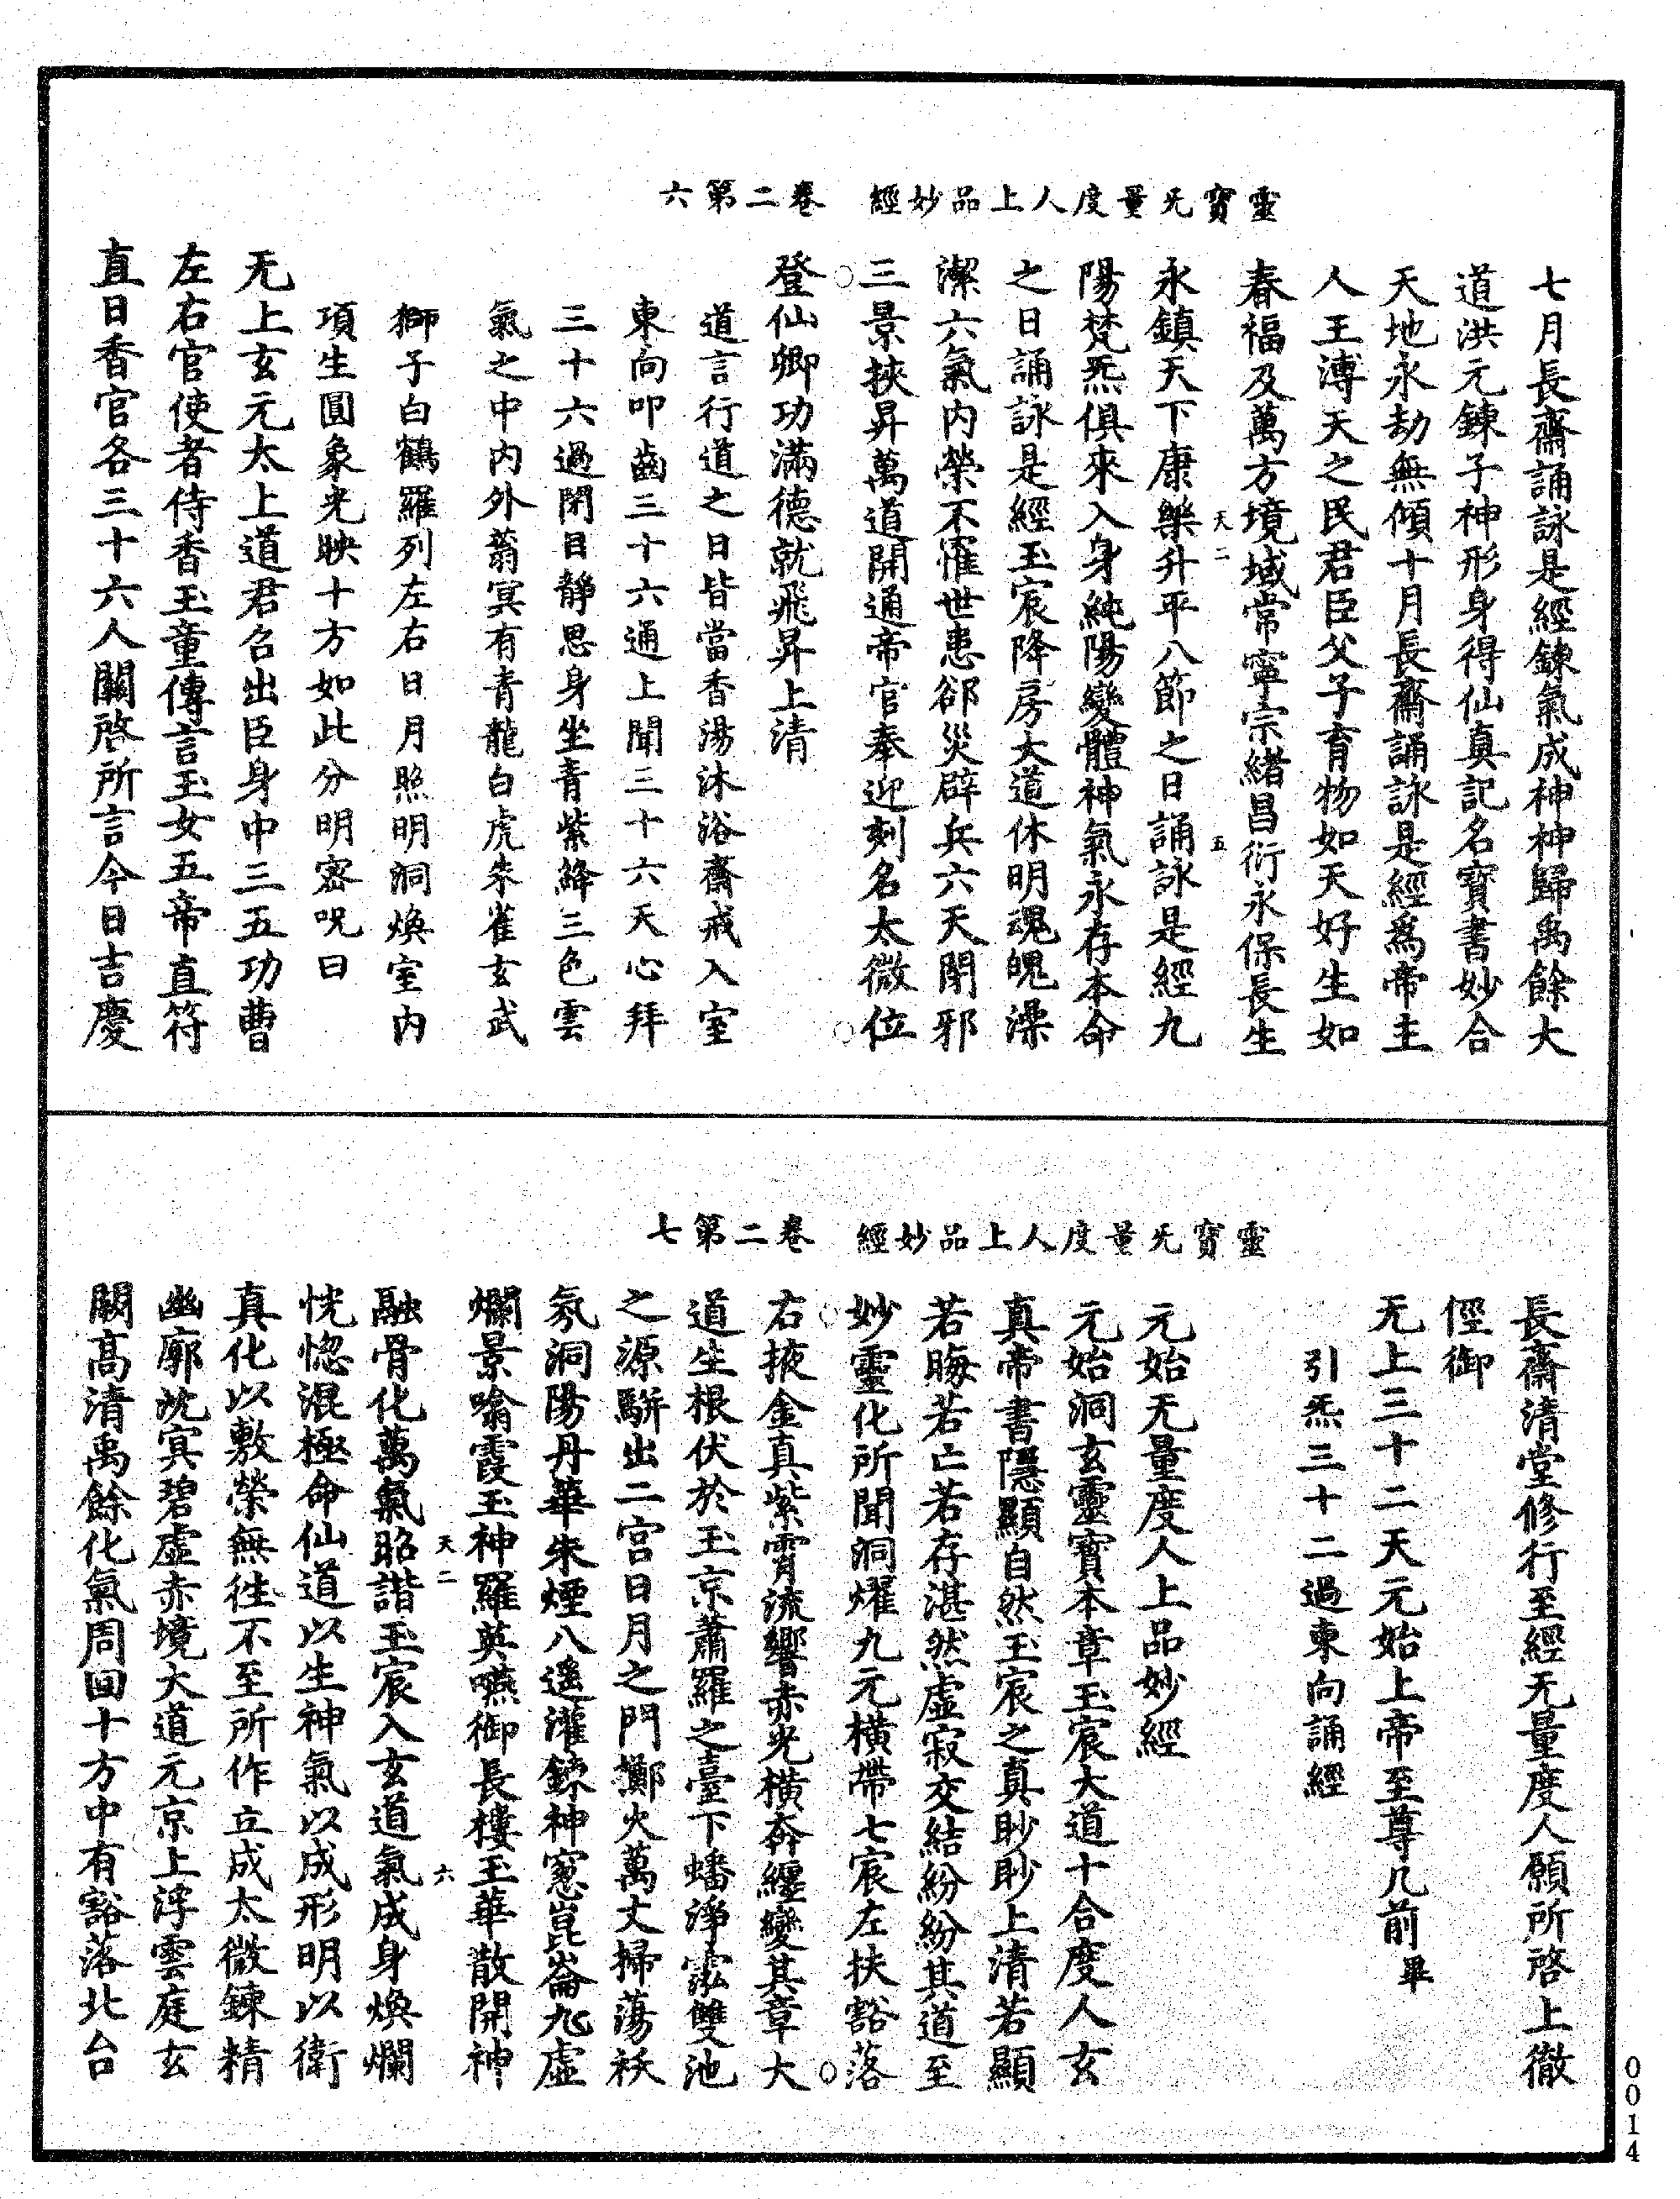 靈寶无量度人上品妙經　卷二第六
七月長齋誦詠是經鍊氣成神神歸禹餘大
道洪元鍊子神形身得仙真記名寶書妙合
天地永劫無傾十月長齋誦詠是經爲帝主
人王溥天之民君臣父子育物如天好生如
春福及萬方境域常寧宗緒昌衍永保長生
天二　五
永鎮天下康樂升平八節之日誦詠是經九
陽梵炁俱來入身純陽變體神氣永存本命
之日誦詠是經玉宸降房大道休明魂魄澡
潔六氣內榮不罹世患郤災辟兵六天閉邪
三景挾昇萬道開通帝官奉迎刻名太微位
登仙卿功滿德就飛昇上清
道言行道之日皆當香湯沐浴齋戒入室
東向叩齒三十六通上聞三十六天心拜
三十六過閉目靜思身坐青紫絳三色雲
氣之中內外蓊冥有青龍白虎朱雀玄武
獅子白鶴羅列左右日月照明洞煥室內
項生圓象光映十方如此分明密呪曰
无上玄元太上道君召出臣身中三五功曹
左右官使者侍香玉童傳言玉女五帝直符
直日香官各三十六人關啓所言今日吉慶
靈寶无量度人上品妙經　卷二第七
長齋清堂修行至經无量度人願所啓上徹
徑御
无上三十二天元始上帝至尊几前畢
引炁三十二過東向誦經
元始无量度人上品妙經
元始洞玄靈寶本章玉宸大道十合度人玄
真帝書隱顯自然玉宸之真眇眇上清若顯
若晦若亡若存湛然虛寂交結紛紛其道至
妙靈化所聞洞燿九元橫帶七宸左扶豁落
右掖金真紫霄流響赤光橫奔纏變其章大
道生根伏於玉京蕭羅之臺下蟠淨泓雙池
之源駢出二宮日月之門擲火萬丈掃蕩祅
氛洞陽丹華朱煙八遙灌鍊神窻崑崙九虛
爛景噏霞玉神羅英嚥御長樓玉華散開神
天二　六
融骨化萬氣昭諧玉宸入玄道氣成身煥爛
恍惚混極命仙道以生神氣以成形明以衛
真化以敷榮無徃不至所作立成太微鍊精
幽廓沈冥碧虛赤境大道元京上浮雲庭玄
闕高清禹餘化氣周回十方中有豁落北台
0014